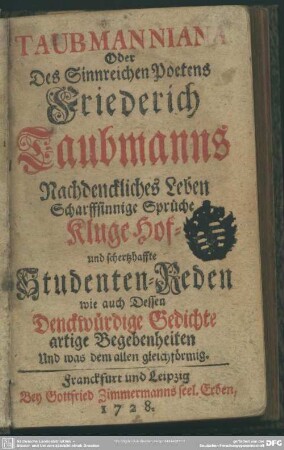 TAUBMANNIANA
Oder
Des Sinnreichen Poetens
Friederich
Taubmanns
Nachdenckliches Leben
Scharffsinnige Sprüche
Kluge Hof-
und schertzhaffte
Studenten-Reden
wie auch Dessen
Denckwürdige Gedichte
artige Begebenheiten
Und was dem allen gleichförmig.
Franckfurt und Leipzig
Bey Gottfried Zimmermanns seel. Erben,
1728.
DFG